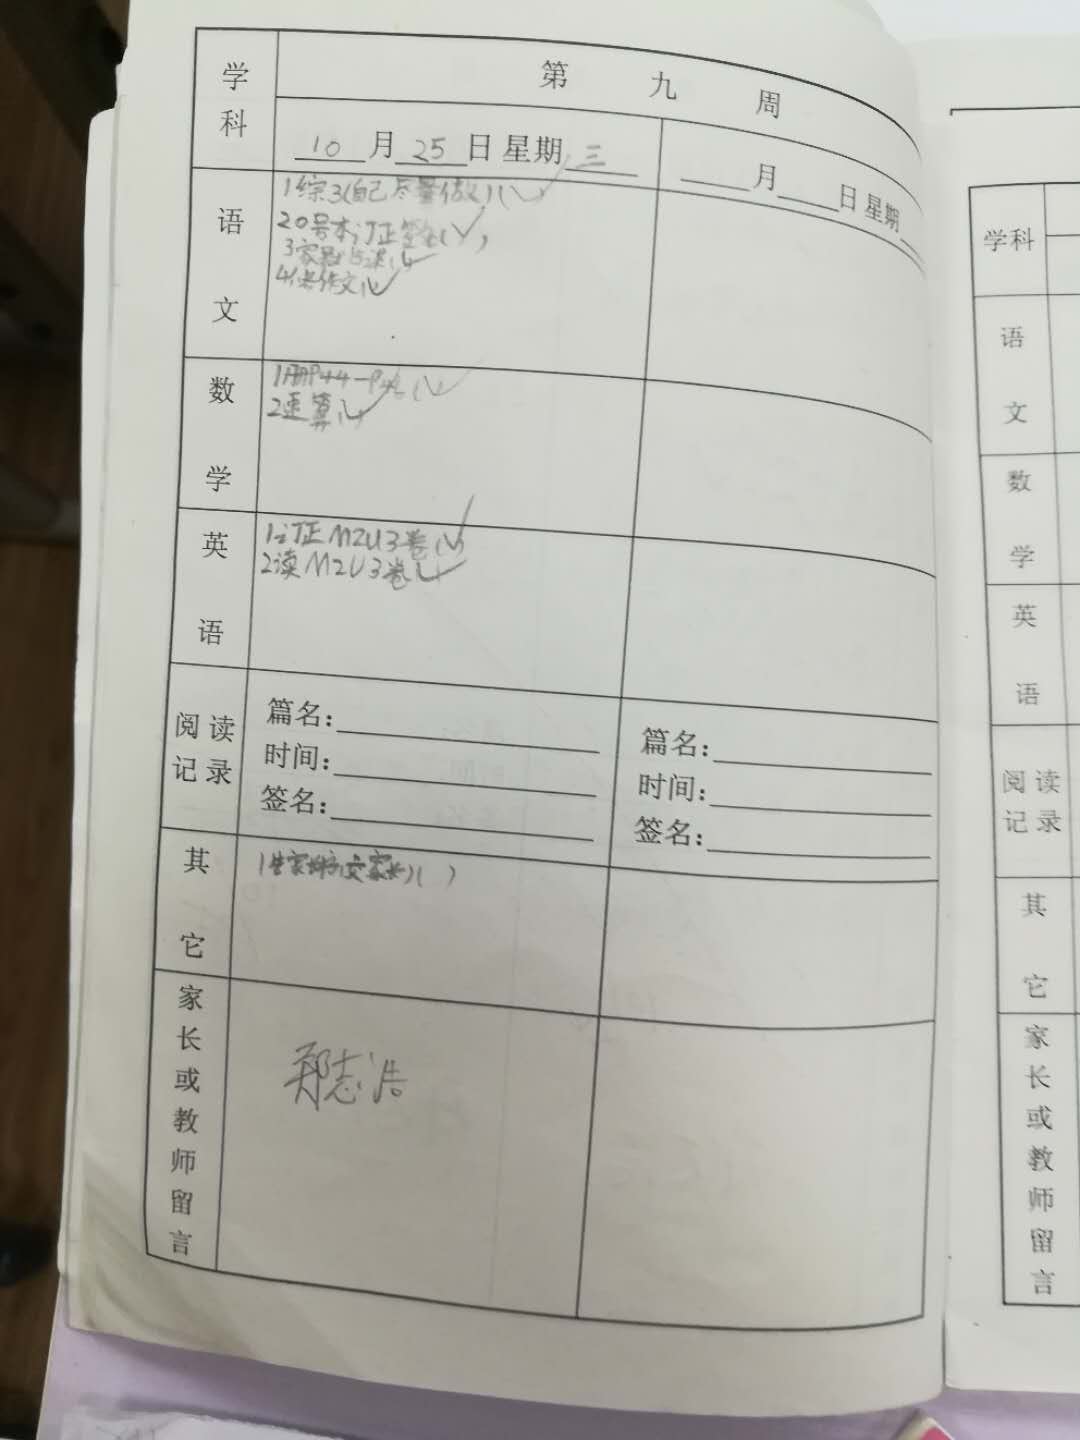 学科
第 九 周
10月25日 星期三
月 日 星期
语文
1综3(自己尽量做)(✓)
20号本订正签名(✓)
3家默
4 作文(✓)
数学
1册P44-P46(✓)
2速算(✓)
英语
1订正M2U3卷(✓)
2读M2U3卷(✓)
阅读记录
篇名:
时间:
签名:
篇名:
时间:
签名:
其它
家长 ( )
家长或教师留言
郑志浩
学科
语文
数学
英语
阅读记录
其它
家长或教师留言